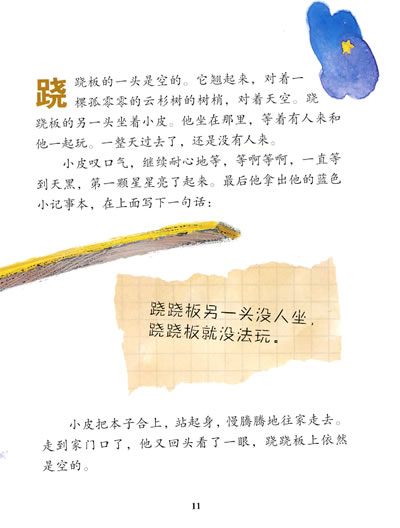 跷跷板的一头是空的。它翘起来，对着一
棵孤零零的云杉树的树梢，对着天空。跷
跷板的另一头坐着小皮。他坐在那里，等着有人来和
他一起玩。一整天过去了，还是没有人来。
小皮叹口气，继续耐心地等，等啊等啊，一直等
到天黑，第一颗星星亮了起来。最后他拿出他的蓝色
小记事本，在上面写下一句话：
跷跷板另一头没人坐，
跷跷板就没法玩。
小皮把本子合上，站起身，慢腾腾地往家走去。
走到家门口了，他又回头看了一眼，跷跷板上依然
是空的。
11